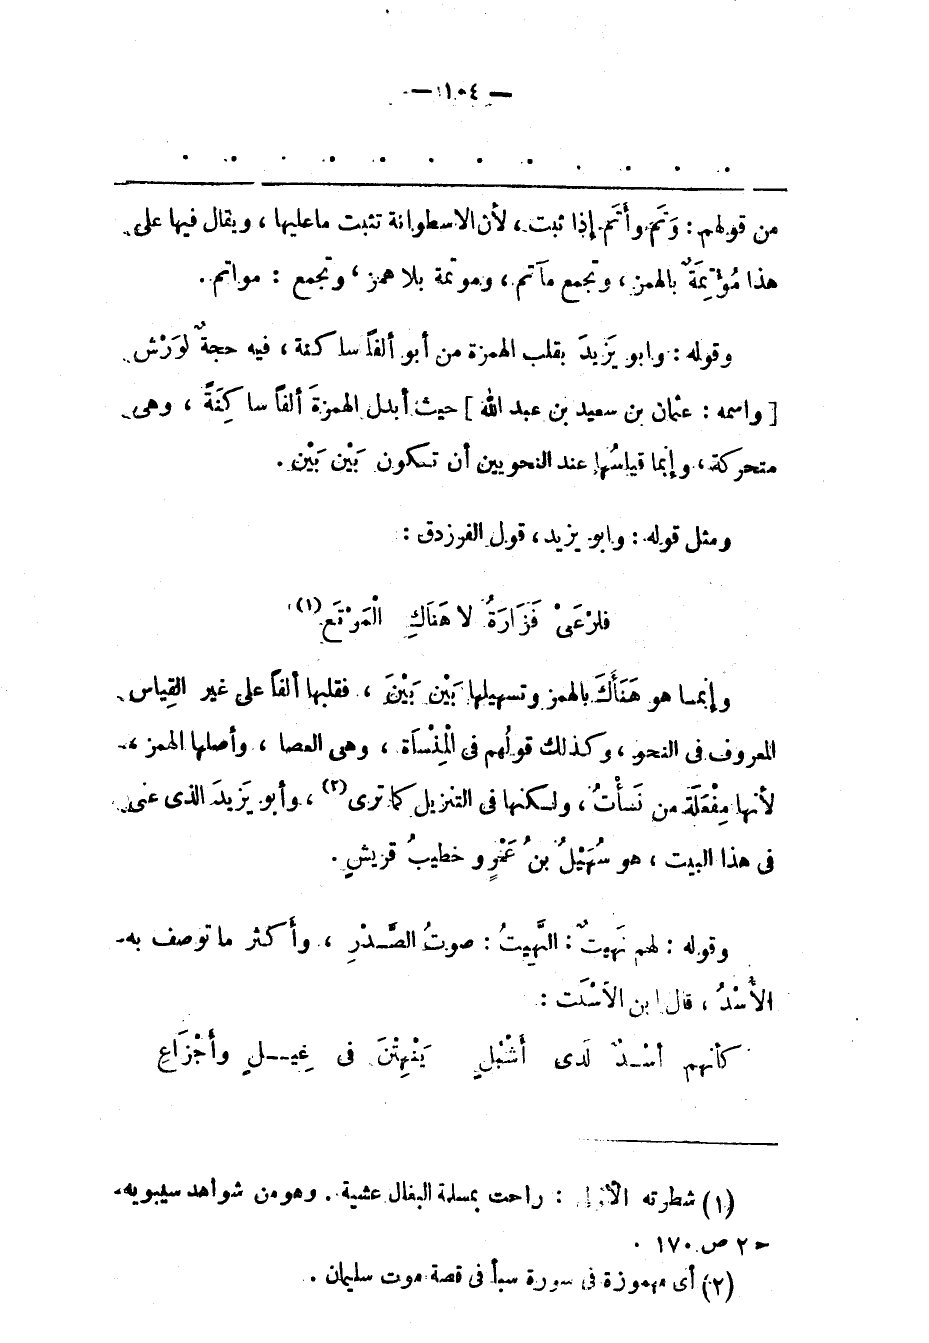 — ١٠٤ —
. . . . . . . . . . . .
من قولهم : وَتَمَ وأَتَمَ إذا ثبت ، لأن الاسطوانة تثبت ماعليها ، ويقال فيها على
هذا مُؤْتِمَةٌ بالهمز ، وتجمع مآتم ، وموتمة بلا همز ، وتجمع : مواتم .
وقوله : وابو يَزيدَ بقلب الهمزة من أبو ألفاً ساكنة ، فيه حجةٌ لوَرْش
[ واسمه : عثمان بن سعيد بن عبد الله ] حيث أبدل الهمزةَ ألفاً ساكِنَةً ، وهى
متحركة ، وإنما قياسُها عند النحويين أن تكون بَيْن بَيْن .
ومثل قوله : وابو يزيد ، قول الفرزدق :
فارْعَىْ فَزَارَةُ لا هَنَاكِ الْمَرْتَع(١)
وإنما هو هَنَأَكَ بالهمز وتسهيلها بَيْن بَيْنَ ، فقلبها ألفاً على غير القِياس
المعروف فى النحو ، وكذلك قولُهم فى الْمِنْسَاة ، وهى العصا ، وأصلها الهمز ،
لأنها مِفْعَلَة من نَسأْتُ ، ولكنها فى التنزيل كما ترى(٢) ، وأبو يَزيدَ الذى عنى
فى هذا البيت ، هو سُهَيْلُ بنُ عَمْرٍو خطيبُ قريشٍ .
وقوله : لهم نَهيتٌ : النَّهِيتُ : صوتُ الصَّدْرِ ، وأكثر ماتوصف به
الأُسْدُ ، قال ابن الأسْلَت :
كأنهم أسْدٌ لَدى أَشْبُلٍ يَنْهِتْنَ فى غِيلٍ وأجْزَاعِ
(١) شطرته الأولى : راحت بمسلمة البغال عشية . وهو من شواهد سيبويه
ح ٢ ص ١٧٠ .
(٢) أى مهموزة فى سورة سبأ فى قصة موت سليمان .